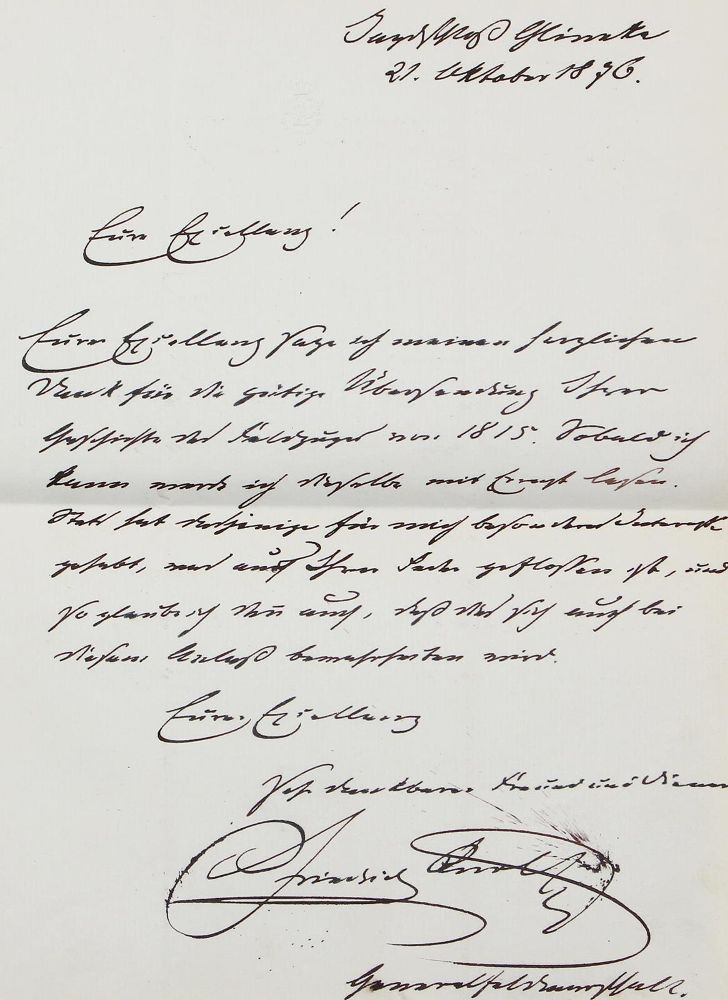 Jagdschloß Glineke
21. Oktober 1876.
Eure Excellenz!
Eurer Excellenz sage ich meinen herzlichen
Dank für die gütige Übersendung Ihrer
Geschichte des Feldzuges von 1815. Sobald ich
kann werde ich dieselbe mit Ernst lesen.
Stets hat dasjenige für mich besonderes Interesse
gehabt, was aus Ihrer Feder geflossen ist, und
so glaube ich denn auch, daß dies sich auch bei
diesem Anlaß bewahrheiten wird.
Eurer Excellenz
sehr dankbarer Freund und Diener
Friedrich Karl
Generalfeldmarschall.